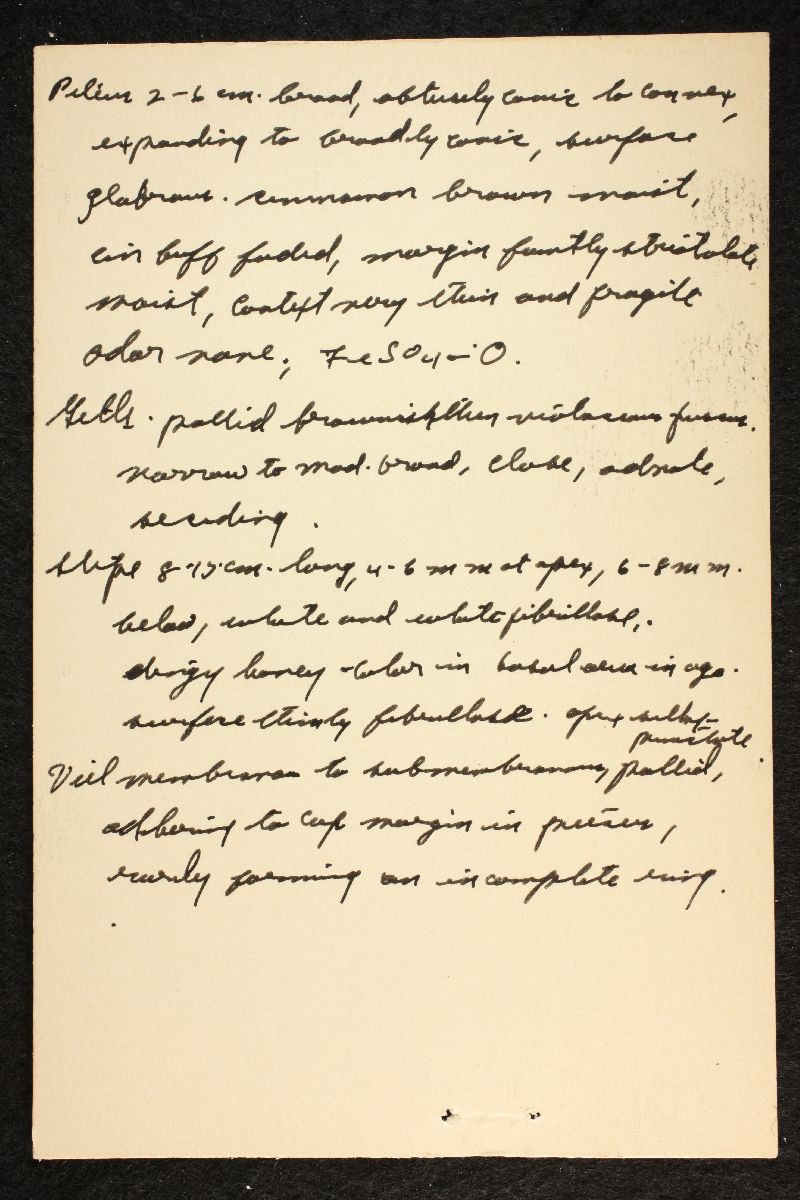 Pileus 2-6 cm. broad, obtusely conic to convex,
expanding to broadly conic, surface
glabrous. cinnamon brown moist,
cin buff faded, margin faintly striatulate
moist, context very thin and fragile
odor none; FeSO4-O.
Gills. pallid brownish then violaceous fuscus.
narrow to mod. broad, close, adnate,
seceding.
Stipe 8-15 cm. long, 4-6 mm at apex, 6-8 mm.
below, white and white fibrillose,.
dingy honey-color in basal area in age.
surface thinly fibrillose. apex silky-
punctate
Veil membranous to submembranous, pallid,
adhering to cap margin in pieces,
rarely forming an incomplete ring.